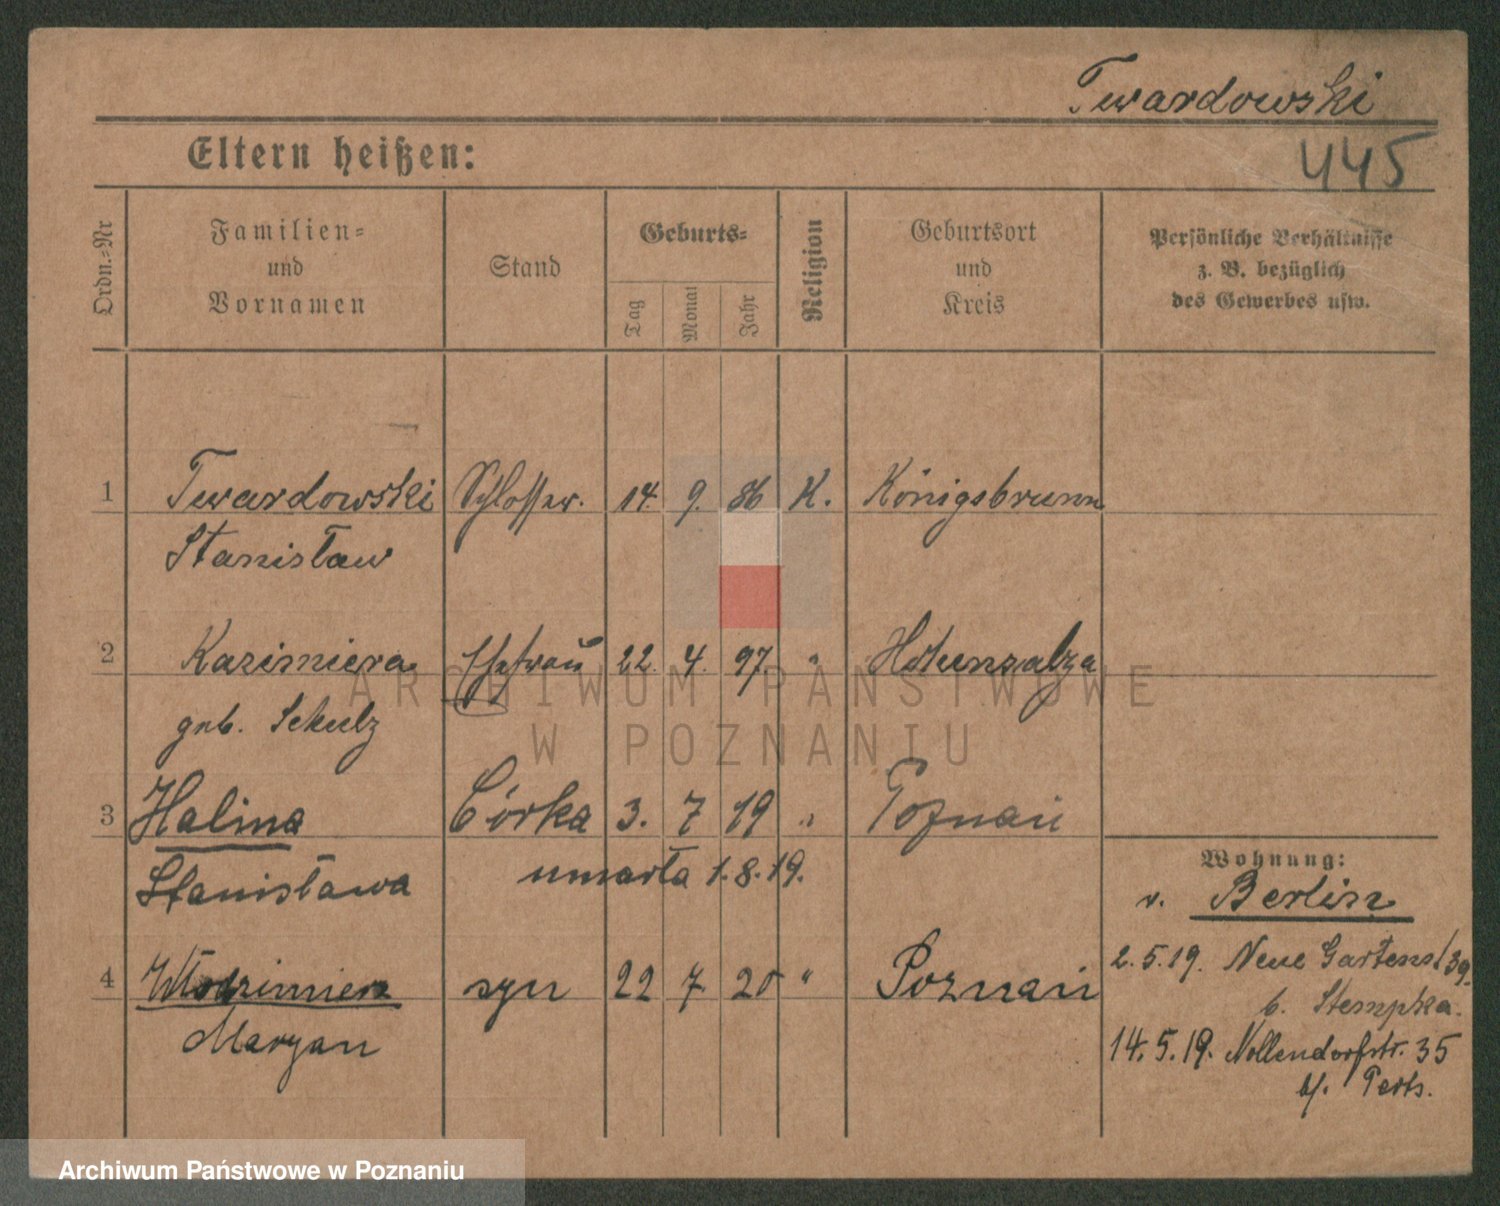 Twardowski
445
Eltern heißen:
Ordn.-Nr
Familien-
und
Vornamen
Stand
Geburts-
Tag
Monat
Jahr
Religion
Geburtsort
und
Kreis
Persönliche Verhältnisse
z. B. bezüglich
des Gewerbes usw.
1 Twardowski Schlosser. 14. 9. 86 K. Königsbrunn
Stanisław
2 Kazimiera Ehefrau 22. 4. 97. " Hohensalza
geb. Schulz
3 Halina Córka 3. 7 19 " Poznań
Stanisława umarła 1.8.19.
4 Włodzimierz syn 22 7 20 " Poznań
Maryan
Wohnung:
v. Berlin
2.5.19. Neue Gartenst 39.
b. Stempka.
14.5.19. Nollendorfstr. 35
b/.
ARCHIWUM PAŃSTWOWE
W POZNANIU
Archiwum Państwowe w Poznaniu